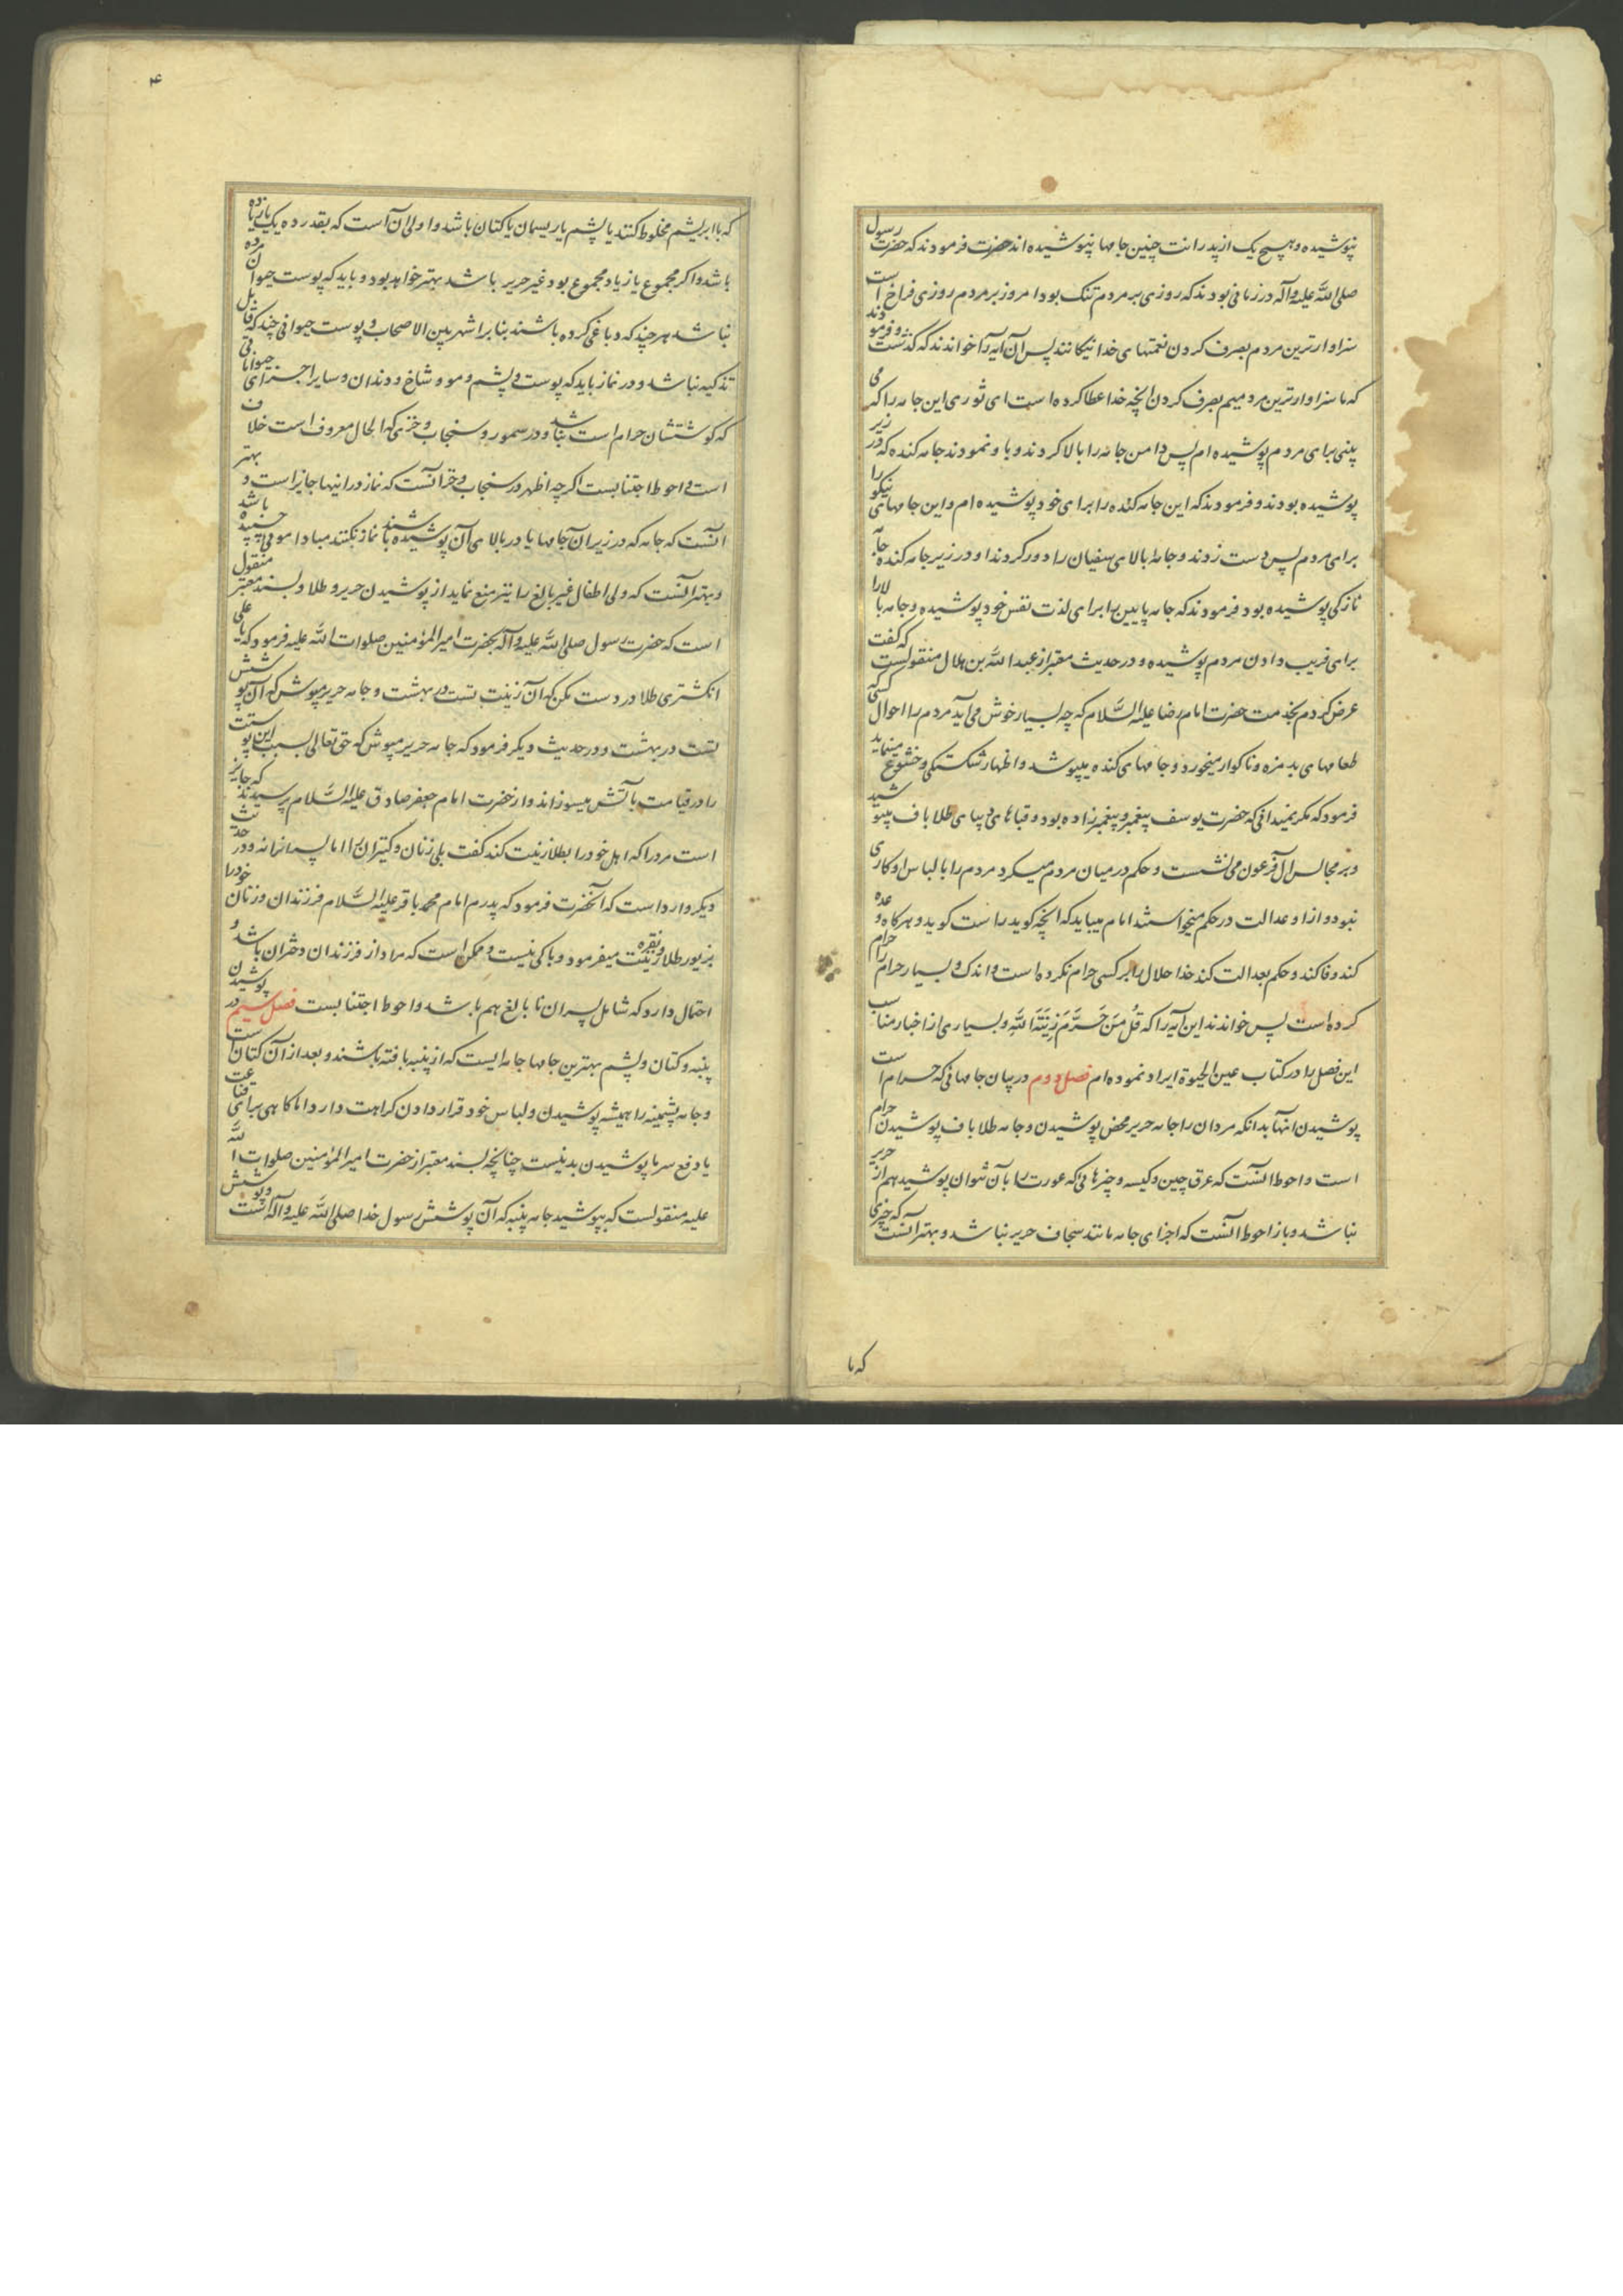 نپوشیده و هیچ یک از پدرانت چنین جامها نپوشیده اند حضرت فرمودند که حضرت رسول
صلی الله علیه وآله در زمانی بودند که روزی بر مردم تنک بود امروز بر مردم روزی فراخ است
سزاوارترین مردم بصرف کردن نعمتهای خدا نیکانند پس آن آیه را خواندند که گذشت و فرمودند
که ما سزاوارترین مردمیم بصرف کردن انچه خدا عطا کرده است ای ثوری این جامه را که می
بینی برای مردم پوشیده ام پس دامن جامه را بالا کردند و باو نمودند جامه کنده که در زیر
پوشیده بودند و فرمودند که این جامه کنده را برای خود پوشیده ام و این جامهای نیکو را
برای مردم پس دست زدند و جامه بالای سفیان را دور کردند او در زیر جامه کنده جامه
نازکی پوشیده بود فرمودند که جامه پایین را برای لذت نفس خود پوشیده و جامه بالا را
برای فریب دادن مردم پوشیده و در حدیث معتبر از عبد الله بن هلال منقولست که گفت
عرض کردم بخدمت حضرت امام رضا علیه السلام که چه بسیار خوش می آید مردم را احوال کسی که
طعامهای بد مزه و ناکوار میخورد و جامهای کنده میپوشد و اظهار شکستکی و خشوع مینماید
فرمود که مکر نمیدانی که حضرت یوسف پیغمبر و پیغمبر زاده بود و قباهای دیبای طلا باف میپوشید
و بر مجالس آل فرعون می نشست و حکم در میان مردم میکرد مردم را با لباس او کاری
نبود و از او عدالت در حکم میخواستند امام میباید که انچه کوید راست کوید و هرکاه وعده
کند وفا کند و حکم بعدالت کند خدا حلال را بر کسی حرام نکرده است و اندک و بسیار حرام را حرام
کرده است پس خواندند این آیه را که قُل مَن حَرَّمَ زِینَةَ اللهِ و بسیاری از اخبار مناسب
این فصل را در کتاب عین الحیوة ایراد نموده ام فصل دوم در بیان جامهائی که حرام است
پوشیدن انها بدانکه مردان را جامه حریر محض پوشیدن و جامه طلا باف پوشیدن حرام
است و احوط آنست که عرق چین و کیسه و چیزهائی که عورت را بآن نتوان پوشید هم از حریر
نباشد و باز احوط آنست که اجزای جامه مانند سجاف حریر نباشد و بهتر آنست که چیزی
که با
۴
که با ابریشم مخلوط کنند یا پشم یا ریسمان یا کتان باشد و اولی آن است که بقدر ده یک یا زیاده
باشد و اکر مجموع یا زیاد مجموع بود غیر حریر باشد بهتر خواهد بود و باید که پوست حیوان مرده
نباشد هر چند که دباغی کرده باشند بنا بر اشهر بین الاصحاب و پوست حیوانی چند که قابل
تذکیه نباشد و در نماز باید که پوست و پشم و مو و شاخ و دندان و سایر اجزای حیواناتی
که کوشتشان حرام است نباشد و در سمور و سنجاب و خزی که الحال معروف است خلاف
است و احوط اجتنابست اکر چه اظهر در سنجاب و خز آنست که نماز در اینها جایز است و بهتر
آنست که جامه که در زیر آن جامها یا در بالای آن پوشیده باشند نماز نکنند مبادا موئی چسپیده باشد
و بهتر آنست که ولی اطفال غیر بالغ را نیز منع نماید از پوشیدن حریر و طلا و بسند معتبر منقول
است که حضرت رسول صلی الله علیه وآله بحضرت امیر المؤمنین صلوات الله علیه فرمود که یا علی
انکشتری طلا در دست مکن که آن زینت تست در بهشت و جامه حریر مپوش که آن پوشش
تست در بهشت و در حدیث دیکر فرمود که جامه حریر مپوش که حق تعالی بسبب این پوستت
را در قیامت بآتش میسوزاند و از حضرت امام جعفر صادق علیه السلام پرسیدند که جایز
است مرد را که اهل خود را بطلا زینت کند کفت بلی زنان و کنیزان را اما پسرانرا نه و در حدیث
دیکر وارد است که آنحضرت فرمود که پدرم امام محمد باقر علیه السلام فرزندان و زنان خود را
بزیور طلا و نقره زینت میفرمود و باکی نیست و ممکن است که مراد از فرزندان دختران باشد و
احتمال دارد که شامل پسران نا بالغ هم باشد و احوط اجتنابست فصل سیم در پوشیدن
پنبه و کتان و پشم بهترین جامها جامه ایست که از پنبه بافته باشند و بعد از آن کتان است
و جامه پشمینه را همیشه پوشیدن و لباس خود قرار دادن کراهت دارد اما کاهی برای قناعت
یا دفع سرما پوشیدن بد نیست چنانچه بسند معتبر از حضرت امیر المؤمنین صلوات الله
علیه منقولست که بپوشید جامه پنبه که آن پوشش رسول خدا صلی الله علیه وآله است و پوشش